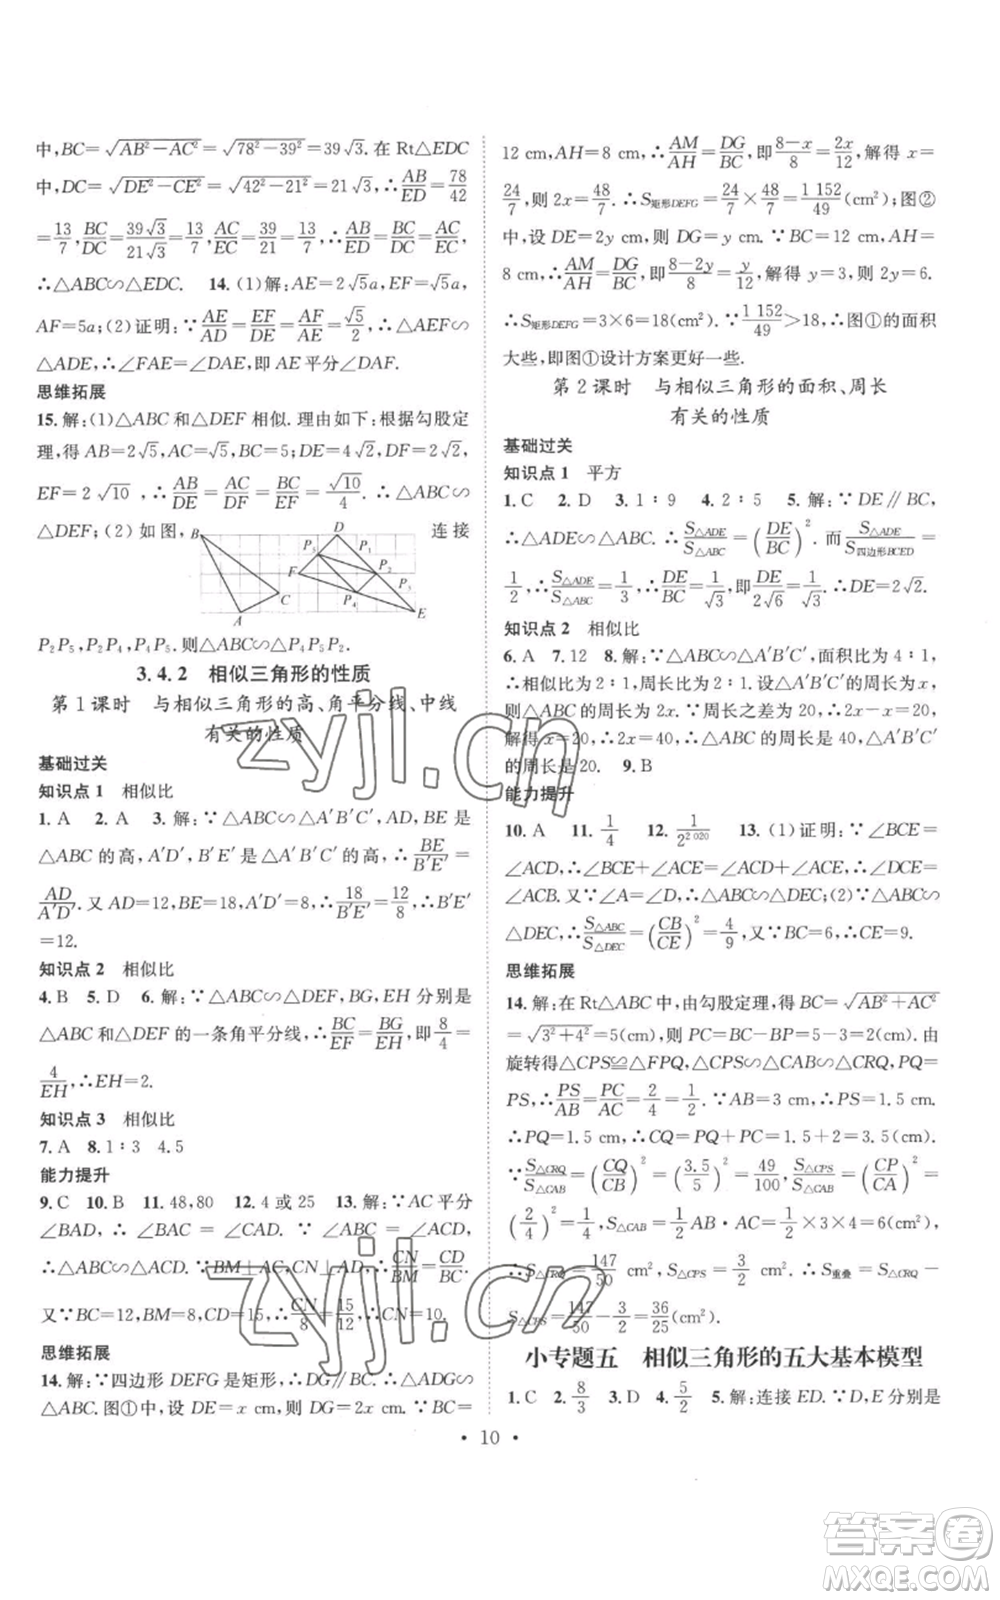 中,BC=√(AB²-AC²)=√(78²-39²)=39√3.在Rt△EDC
中,DC=√(DE²-CE²)=√(42²-21²)=21√3,∴AB/ED=78/42
=13/7,BC/DC=39√3/21√3=13/7,AC/EC=39/21=13/7,∴AB/ED=BC/DC=AC/EC,
∴△ABC∽△EDC. 14.(1)解:AE=2√5a,EF=√5a,
AF=5a;(2)证明:∵AE/AD=EF/DE=AF/AE=√5/2,∴△AEF∽
△ADE,∴∠FAE=∠DAE,即AE平分∠DAF.
思维拓展
15.解:(1)△ABC和△DEF相似.理由如下:根据勾股定
理,得AB=2√5,AC=√5,BC=5;DE=4√2,DF=2√2,
EF=2√10,∴AB/DE=AC/DF=BC/EF=√10/4.∴△ABC∽
△DEF;(2)如图,连接
B D P₁ P₃ F P₂ C P₄ P₅ A E
P₂P₅,P₂P₄,P₄P₅.则△ABC∽△P₅P₂P₄.
3.4.2 相似三角形的性质
第1课时 与相似三角形的高、角平分线、中线
有关的性质
基础过关
知识点1 相似比
1.A 2.A 3.解:∵△ABC∽△A′B′C′,AD,BE是
△ABC的高,A′D′,B′E′是△A′B′C′的高,∴BE/B′E′=
AD/A′D′.又AD=12,BE=18,A′D′=8,∴18/B′E′=12/8,∴B′E′
=12.
知识点2 相似比
4.B 5.D 6.解:∵△ABC∽△DEF,BG,EH分别是
△ABC和△DEF的一条角平分线,∴BC/EF=BG/EH,即8/4=
4/EH,∴EH=2.
知识点3 相似比
7.A 8.1∶3 4.5
能力提升
9.C 10.B 11.48,80 12.4或25 13.解:∵AC平分
∠BAD,∴∠BAC=∠CAD.∵∠ABC=∠ACD,
∴△ABC∽△ACD.∵BM⊥AC,CN⊥AD,∴CN/BM=CD/BC.
又∵BC=12,BM=8,CD=15,∴CN/8=15/12,∴CN=10.
思维拓展
14.解:∵四边形DEFG是矩形,∴DG∥BC.∴△ADG∽
△ABC.图①中,设DE=x cm,则DG=2x cm.∵BC=
12 cm,AH=8 cm,∴AM/AH=DG/BC,即(8-x)/8=2x/12,解得x=
24/7,则2x=48/7.∴S矩形DEFG=24/7×48/7=1 152/49(cm²);图②
中,设DE=2y cm,则DG=y cm.∵BC=12 cm,AH=
8 cm,∴AM/AH=DG/BC,即(8-2y)/8=y/12,解得y=3.则2y=6.
∴S矩形DEFG=3×6=18(cm²).∵1 152/49>18,∴图①的面积
大些,即图①设计方案更好一些.
第2课时 与相似三角形的面积、周长
有关的性质
基础过关
知识点1 平方
1.C 2.D 3.1∶9 4.2∶5 5.解:∵DE∥BC,
∴△ADE∽△ABC.∴S△ADE/S△ABC=(DE/BC)².而S△ADE/S四边形BCED=
1/2,∴S△ADE/S△ABC=1/3,∴DE/BC=1/√3,即DE/2√6=1/√3.∴DE=2√2.
知识点2 相似比
6.A 7.12 8.解:∵△ABC∽△A′B′C′,面积比4∶1,
∴相似比为2∶1,周长比为2∶1.设△A′B′C′的周长为x,
则△ABC的周长为2x.∵周长之差为20,∴2x-x=20,
解得x=20.∴2x=40,∴△ABC的周长是40,△A′B′C′
的周长是20. 9.B
能力提升
10.A 11.1/4 12.1/2²⁰²⁰ 13.(1)证明:∵∠BCE=
∠ACD,∴∠BCE+∠ACE=∠ACD+∠ACE,∴∠DCE=
∠ACB.又∵∠A=∠D,∴△ABC∽△DEC;(2)△ABC∽
△DEC,∴S△ABC/S△DEC=(CB/CE)²=4/9,又∵BC=6,∴CE=9.
思维拓展
14.解:在Rt△ABC中,由勾股定理,得BC=√(AB²+AC²)
=√(3²+4²)=5(cm),则PC=BC-BP=5-3=2(cm).由
旋转得△CPS≌△FPQ,△CPS∽△CAB∽△CRQ,PQ=
PS,∴PS/AB=PC/AC=2/4=1/2.∵AB=3 cm,∴PS=1.5 cm.
∴PQ=1.5 cm,∴CQ=PQ+PC=1.5+2=3.5(cm).
∵S△CRQ/S△CAB=(CQ/CB)²=(3.5/5)²=49/100,S△CPS/S△CAB=(CP/CA)²=
(2/4)²=1/4,S△CAB=1/2AB·AC=1/2×3×4=6(cm²),
∴S△CRQ=147/50 cm²,S△CPS=3/2 cm².∴S重叠=S△CRQ-
S△CPS=147/50-3/2=36/25(cm²).
小专题五 相似三角形的五大基本模型
1.C 2.8/3 3.D 4.5/2 5.解:连接ED.∵D,E分别是
·10·
zyjl.cn
zyjl.cn
答案圈
MXQE.COM